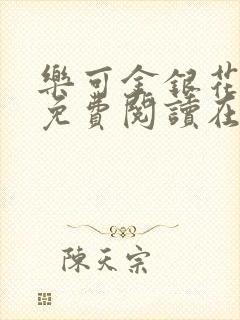 樂可金銀花
免費閱讀在
陳天宗